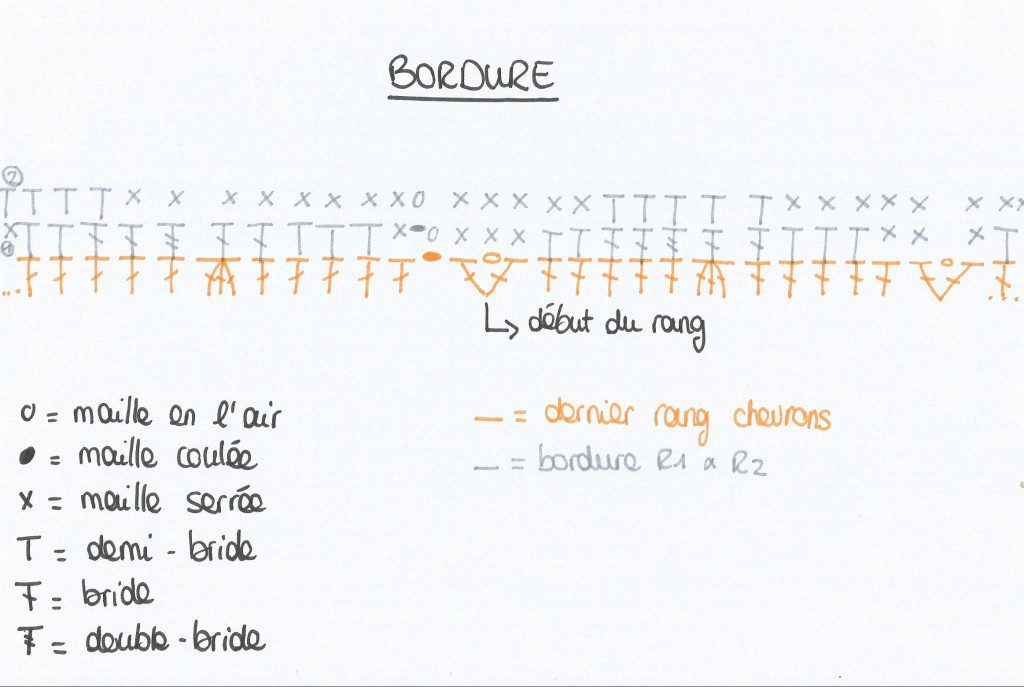 BORDURE
②
①
début du rang
o = maille en l'air
● = maille coulée
x = maille serrée
T = demi-bride
Ŧ = bride
Ŧ = double-bride
— = dernier rang chevrons
— = bordure R1 & R2